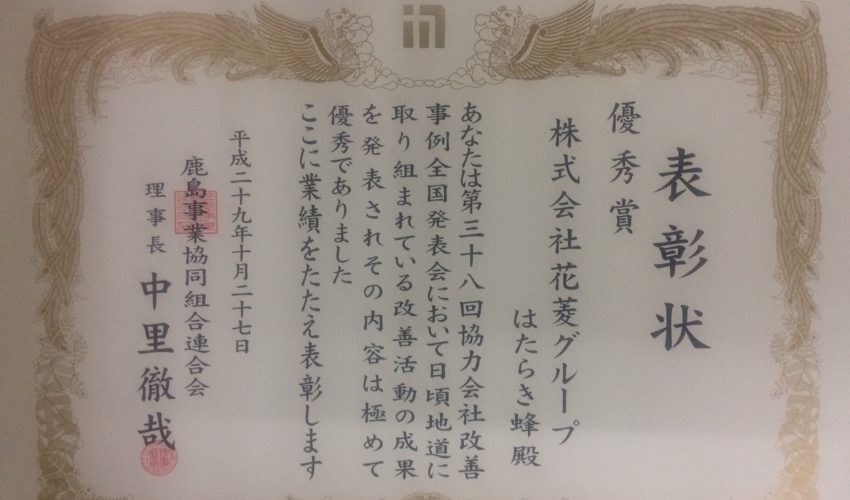 表彰状
優秀賞
株式会社花菱グループ
はたらき蜂殿
あなたは第三十八回協力会社改善
事例全国発表会において日頃地道に
取り組まれている改善活動の成果
を発表されその内容は極めて
優秀でありました
ここに業績をたたえ表彰します
平成二十九年十月二十七日
鹿島事業協同組合連合会
理事長 中里徹哉